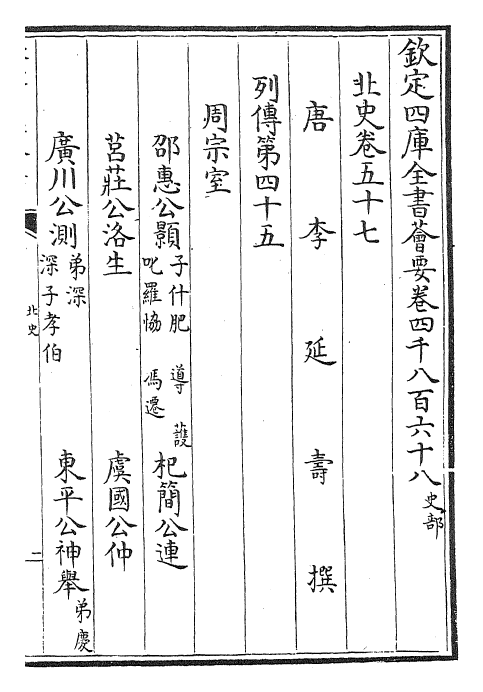 欽定四庫全書薈要卷四千八百六十八 史部
北史卷五十七
唐 李 延 壽 撰
列傳第四十五
周宗室
邵惠公顥 子什肥 導 䕶 叱羅恊 馮遷 杞簡公連
莒莊公洛生 虞國公仲
廣川公測 弟深 深子孝伯 東平公神舉 弟慶
北史
二